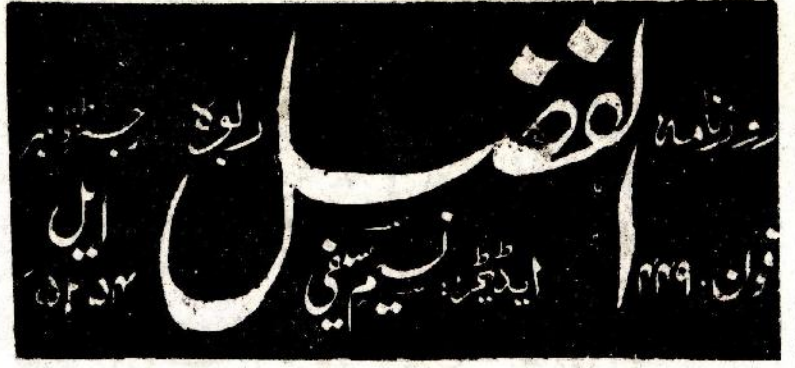 روزنامہ الفضل ربوہ رجسٹرڈ نمبر
فون۔ ۴۴۹ ایڈیٹر: نسیم سیفی ایل ۵۲۵۴